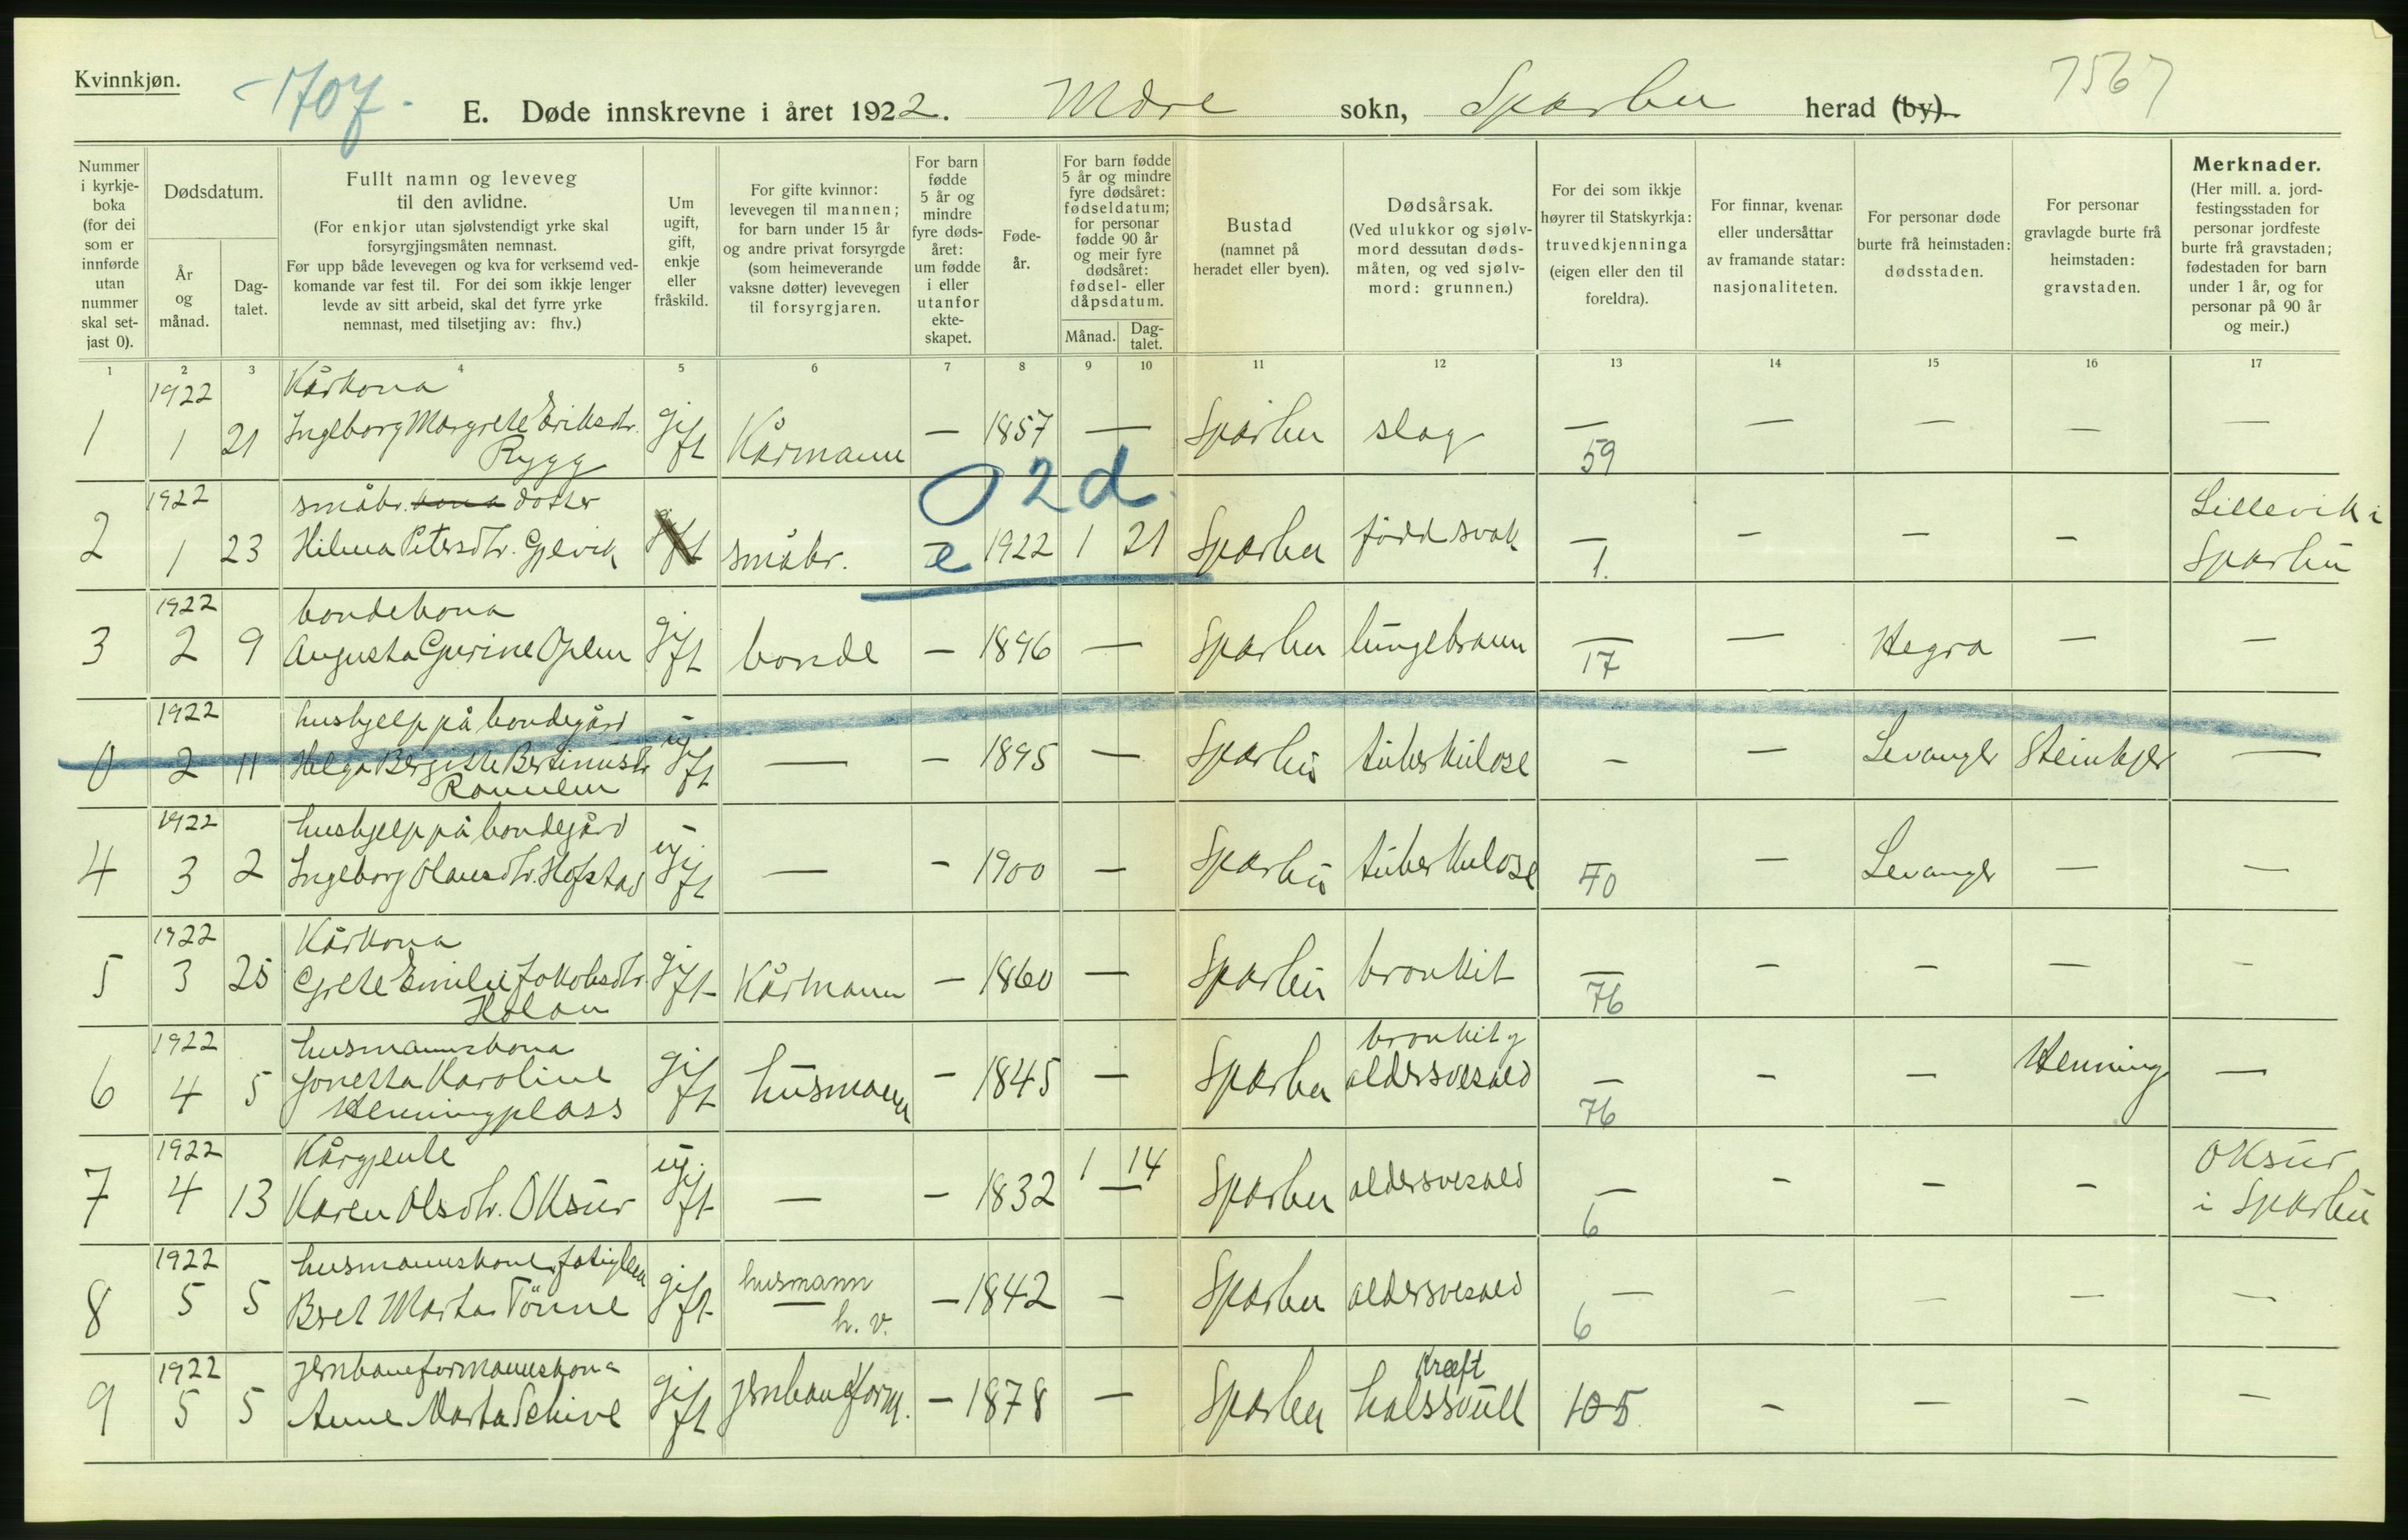 Kvinnkjøn.
-1707-
E. Døde innskrevne i året 1922. Mære sokn, Sparbu herad (by).
7567
Nummer i kyrkje-boka (for dei som er innførde utan nummer skal set-jast 0).
Dødsdatum.
År og månad.
Dag-talet.
Fullt namn og leveveg til den avlidne.
(For enkjor utan sjølvstendigt yrke skal forsyrgjingsmåten nemnast.
Før upp både levevegen og kva for verksemd ved-komande var fest til. For dei som ikkje lenger levde av sitt arbeid, skal det fyrre yrke nemnast, med tilsetjing av: fhv.)
Um ugift, gift, enkje eller fråskild.
For gifte kvinnor: levevegen til mannen; for barn under 15 år og andre privat forsyrgde (som heimeverande vaksne døtter) levevegen til forsyrgjaren.
For barn fødde 5 år og mindre fyre døds-året: um fødde i eller utanfor ekte-skapet.
Føde-år.
For barn fødde 5 år og mindre fyre dødsåret: fødseldatum; for personar fødde 90 år og meir fyre dødsåret: fødsel- eller dåpsdatum.
Månad.
Dag-talet.
Bustad (namnet på heradet eller byen).
Dødsårsak. (Ved ulukkor og sjølv-mord dessutan døds-måten, og ved sjølv-mord: grunnen.)
For dei som ikkje høyrer til Statskyrkja: truvedkjenninga (eigen eller den til foreldra).
For finnar, kvenar eller undersåttar av framande statar: nasjonaliteten.
For personar døde burte frå heimstaden: dødsstaden.
For personar gravlagde burte frå heimstaden: gravstaden.
Merknader. (Her mill. a. jord-festingsstaden for personar jordfeste burte frå gravstaden; fødestaden for barn under 1 år, og for personar på 90 år og meir.)
1 2 3 4 5 6 7 8 9 10 11 12 13 14 15 16 17
1 1922 1 21 Kårkona Ingeborg Margrete Eriksdtr. Rygg gift Kårmann — 1857 — Sparbu slag — 59 — — — —
O 2 d.
2 1922 1 23 småbr. kona dotter Hilma Petersdtr. Gjevik gift småbr. e 1922 1 21 Sparbu född svak — 1. — — — Lillevik i Sparbu
3 1922 2 9 bondekona Augusta Gurine Oplu gift bonde — 1896 — Sparbu lungebrann — 17 — Hegra — —
0 1922 2 11 hushjelp på bondegård Helga Bergitte Bertinusdtr. ugift — — 1895 — Sparbu tuberkulose — — Levanger Steinkjer —
4 1922 3 2 hushjelp på bondegård Ingeborg Olausdtr. Hofstad ugift — — 1900 — Sparbu tuberkulose 40 — Levanger — —
5 1922 3 25 Kårkona Grete Emilie Jakobsdtr. Holan gift Kårmann — 1860 — Sparbu bronkit — 76 — — — —
6 1922 4 5 husmannskona Jonetta Karoline Henningplass gift husmann — 1845 — Sparbu bronkit og aldersvekled — 76 — — Henning —
7 1922 4 13 Kårgjente Karen Olsdtr. Oksur ugift — — 1832 1 14 — Sparbu aldersvekled — 6 — — — Oksur i Sparbu
8 1922 5 5 husmannskone, fatiglem Beret Marta Tönne gift husmann — h. v. — 1842 — Sparbu aldersvekled — 6 — — — —
9 1922 5 5 jernbaneformannskona Anne Marta Schive gift jernbaneform. — 1878 — Sparbu Kræft halssvull 105 — — — —